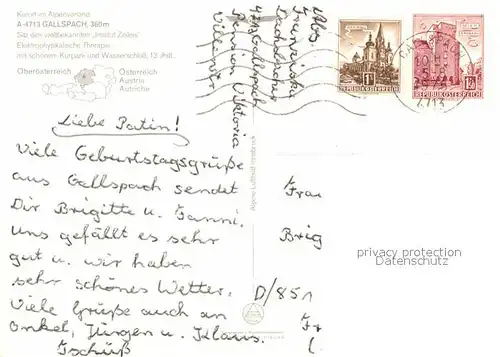 Kurort im Alpenvorland
A-4713 GALLSPACH, 360m
Sitz des weltbekannten „Institut Zeileis"
Elektrophysikalische Therapie
mit schönem Kurpark und Wasserschloß, 12. Jhdt.
Oberösterreich
Österreich
Austria
Autriche
Liebe Patin!
Viele Geburtstagsgrüße
aus Gallspach sendet
Dir Brigitte u. Hanni.
Uns gefällt es sehr
gut u. wir haben
sehr schönes Wetter.
Viele Grüße auch an
Onkel, Jürgen u. Klaus.
Tschüß
Abs.
4713 Gallspach
Pension Viktoria
Alpine Luftbild Innsbruck
1
REPUBLIK ÖSTERREICH
REPUBLIK ÖSTERREICH
4713
Frau
Brig
D/851
Fr
privacy protection
Datenschutz